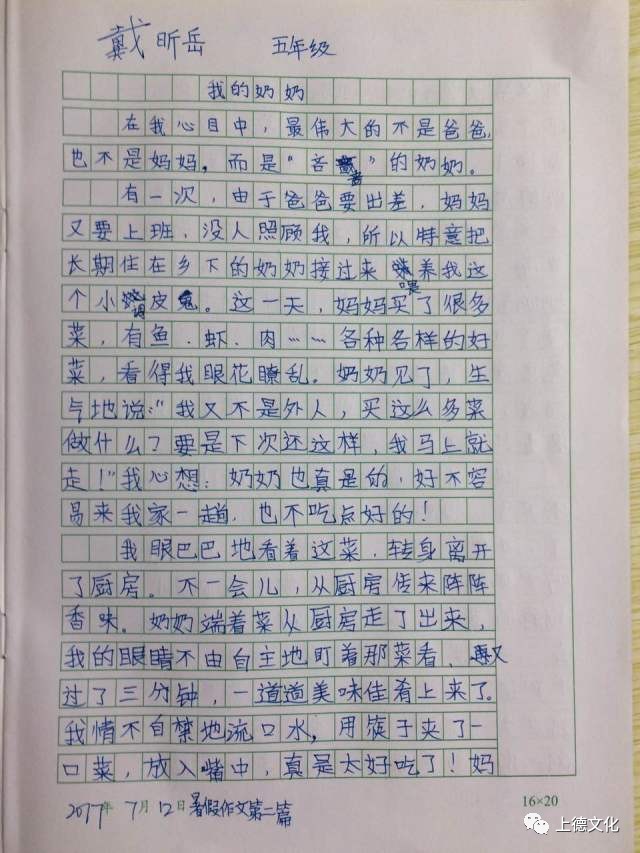 戴昕岳 五年级
我的奶奶
在我心目中，最伟大的不是爸爸，
也不是妈妈，而是“吝啬”的奶奶。
有一次，由于爸爸要出差，妈妈
又要上班，没人照顾我，所以特意把
长期住在乡下的奶奶接过来 养我这
个小调皮鬼。这一天，妈妈买了很多
菜，有鱼．虾．肉……各种各样的好
菜，看得我眼花瞭乱。奶奶见了，生
气地说：“我又不是外人，买这么多菜
做什么？要是下次还这样，我马上就
走！”我心想：奶奶也真是的，好不容
易来我家一趟，也不吃点好的！
我眼巴巴地看着这菜，转身离开
了厨房。不一会儿，从厨房传来阵阵
香味。奶奶端着菜从厨房走了出来，
我的眼睛不由自主地盯着那菜看、再又
过了三分钟，一道道美味佳肴上来了。
我情不自禁地流口水，用筷子夹了一
口菜，放入嘴中，真是太好吃了！妈
2017年7月12日暑假作文第二篇
16×20
上德文化